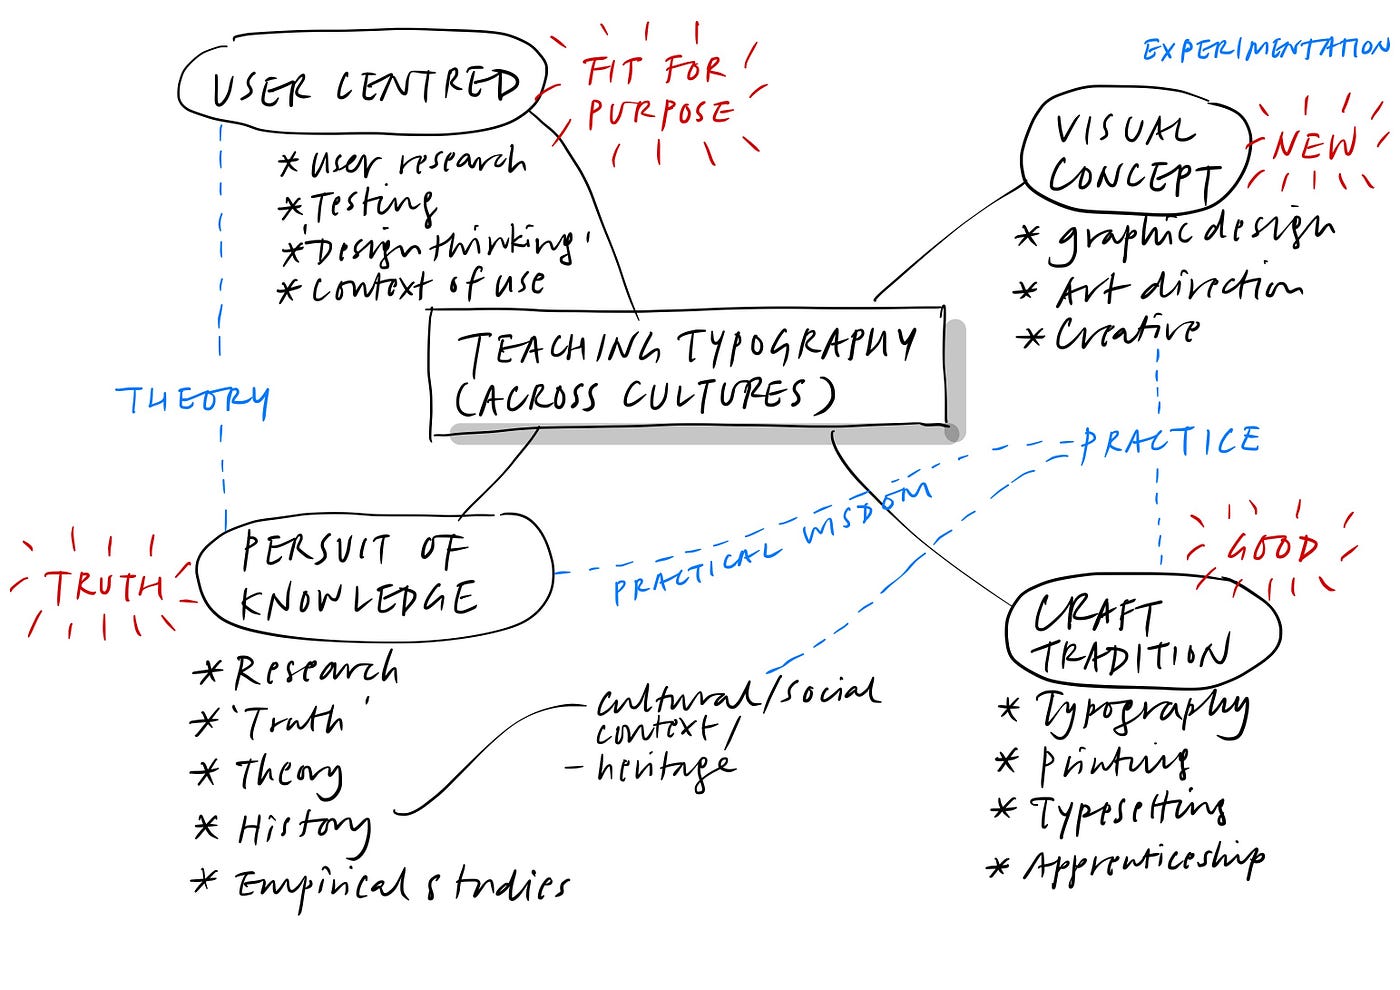 USER CENTRED
FIT FOR
PURPOSE
* User research
* Testing
* 'Design thinking'
* Context of use
EXPERIMENTATION
VISUAL
CONCEPT
NEW
* graphic design
* Art direction
* Creative
TEACHING TYPOGRAPHY
(ACROSS CULTURES)
THEORY
PRACTICE
PRACTICAL WISDOM
TRUTH
PERSUIT OF
KNOWLEDGE
* Research
* 'Truth'
* Theory
* History
* Empirical studies
cultural/social
context/
– heritage
GOOD
CRAFT
TRADITION
* Typography
* Printing
* Typesetting
* Apprenticeship